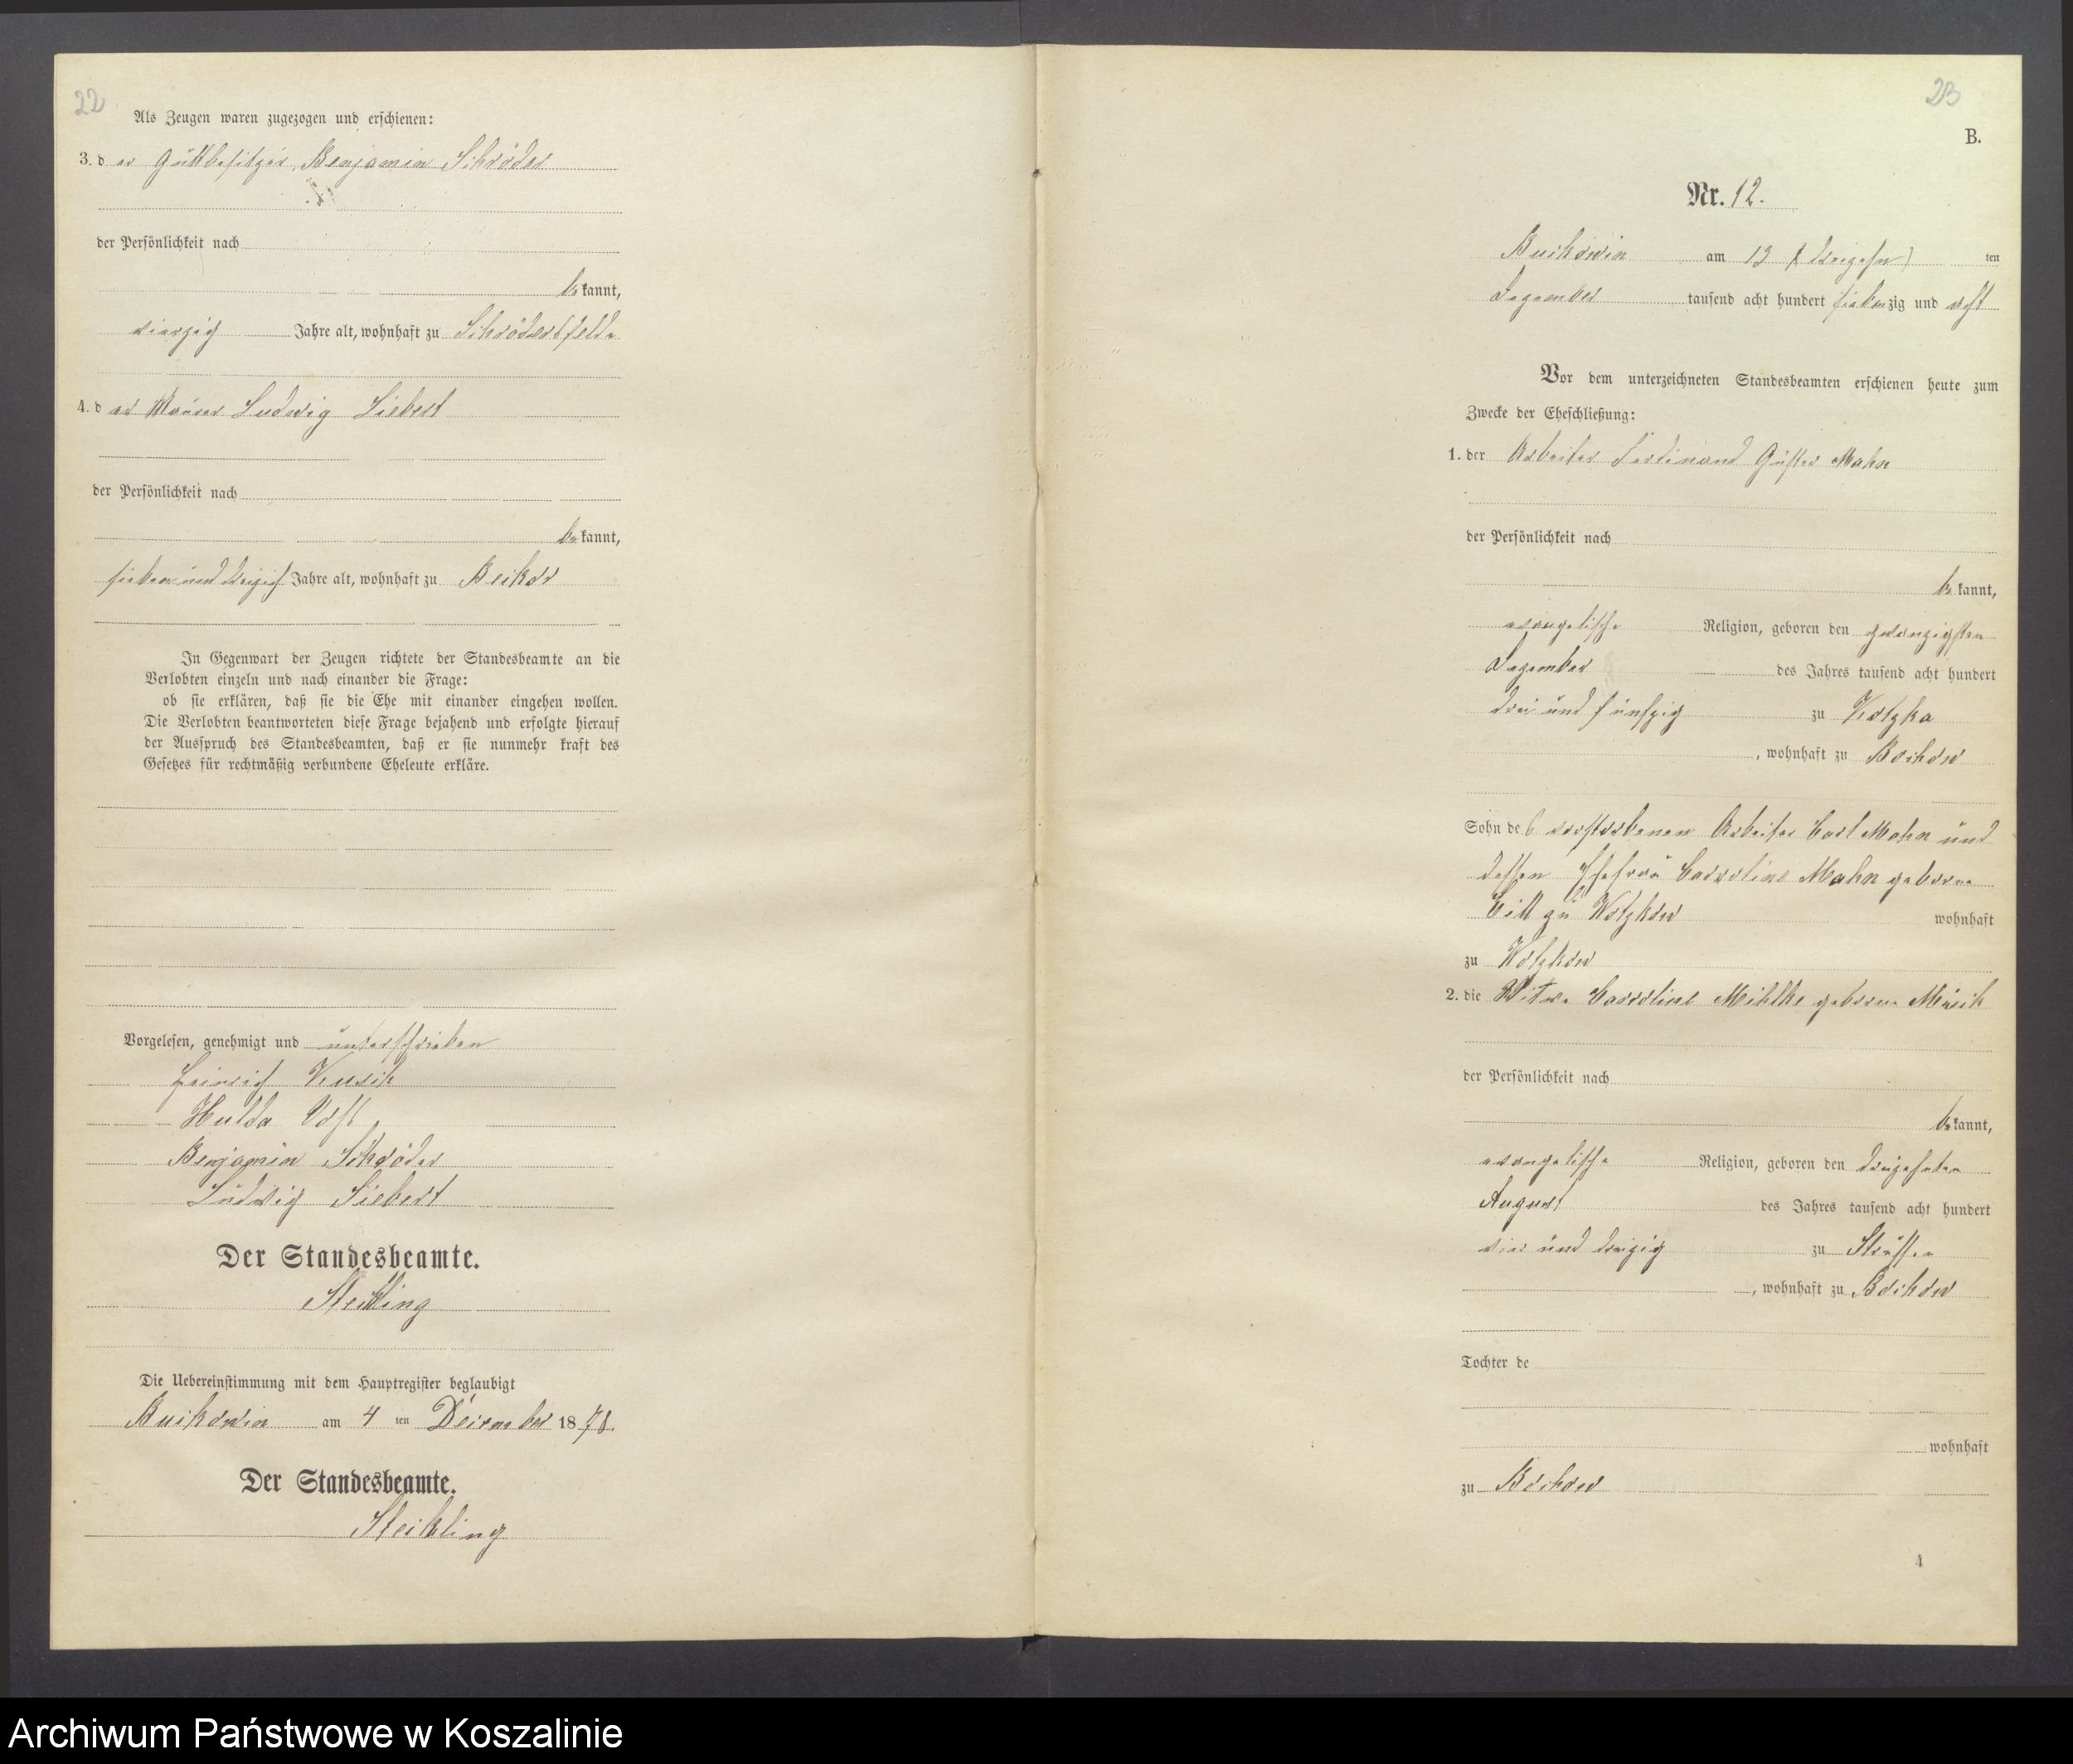 22
Als Zeugen waren zugezogen und erschienen:
3. d er Gutsbesitzer Benjamin Schröder
der Persönlichkeit nach
be kannt,
vierzig Jahre alt, wohnhaft zu Schrödersfelde
4. d er Maurer Ludwig Siebert
der Persönlichkeit nach
be kannt,
sieben und dreizig Jahre alt, wohnhaft zu
In Gegenwart der Zeugen richtete der Standesbeamte an die
Verlobten einzeln und nach einander die Frage:
ob sie erklären, daß sie die Ehe mit einander eingehen wollen.
Die Verlobten beantworteten diese Frage bejahend und erfolgte hierauf
der Ausspruch des Standesbeamten, daß er sie nunmehr kraft des
Gesetzes für rechtmäßig verbundene Eheleute erkläre.
Vorgelesen, genehmigt und unterschrieben
Heinrich
Hulda
Benjamin Schröder
Ludwig Siebert
Der Standesbeamte.
Die Uebereinstimmung mit dem Hauptregister beglaubigt
Buckowin am 4 ten December 1878.
Der Standesbeamte.
23
B.
Nr. 12.
Buckowin am 13 (dreizehn) ten
Dezember tausend acht hundert siebenzig und acht
Vor dem unterzeichneten Standesbeamten erschienen heute zum
Zwecke der Eheschließung:
1. der Arbeiter Ferdinand Gustav Mahn
der Persönlichkeit nach
be kannt,
evangelische Religion, geboren den zwanzigsten
Dezember des Jahres tausend acht hundert
drei und fünfzig zu
, wohnhaft zu Bochow
Sohn des verstorbenen Arbeiter Carl Mahn und
dessen Ehefrau Carroline Mahn geborne
zu wohnhaft
zu
2. die Witwe Carroline geborne
der Persönlichkeit nach
be kannt,
evangelische Religion, geboren den dreizehnten
August des Jahres tausend acht hundert
vier und dreizig zu
, wohnhaft zu Bochow
Tochter de
wohnhaft
zu Bochow
4
Archiwum Państwowe w Koszalinie